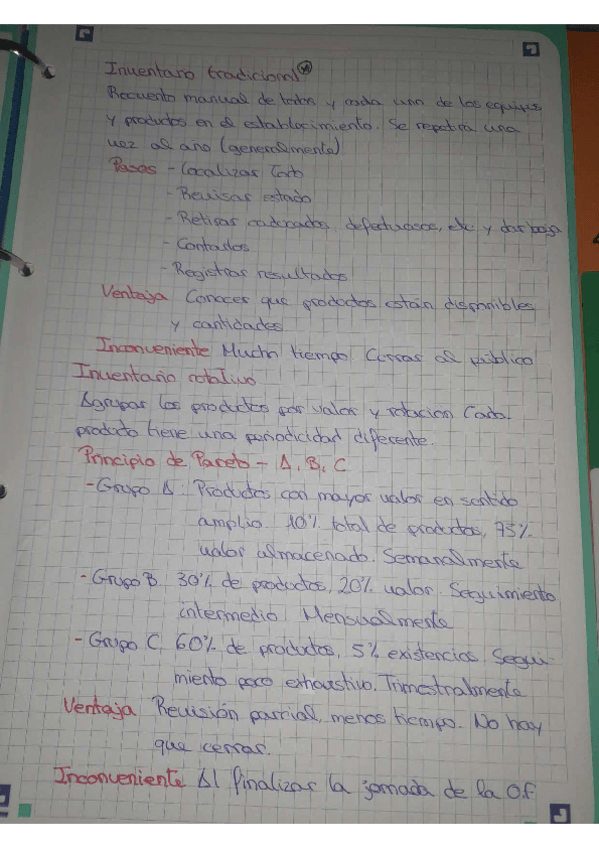 Inventario tradicional
Recuento manual de todos y cada uno de los equipos
y productos en el establecimiento. Se repetirá una
vez al año (generalmente)
Pasos - Localizar
- Revisar estado
- Retirar caducados, defectuosos, etc y dar baja
- Contarlos
- Registrar resultados
Ventaja Conocer que productos están disponibles
y cantidades
Inconveniente Mucho tiempo. Cerrar al público
Inventario rotativo
Agrupar los productos por valor y rotación. Cada
producto tiene una periodicidad diferente.
Principio de Pareto - A, B, C
- Grupo A. Productos con mayor valor en sentido
amplio. 10% total de productos, 75%
valor almacenado. Semanalmente
- Grupo B. 30% de productos, 20% valor. Seguimiento
intermedio. Mensualmente
- Grupo C. 60% de productos, 5% existencias. Segui-
miento poco exhaustivo. Trimestralmente
Ventaja Revisión parcial, menos tiempo. No hay
que cerrar.
Inconveniente Al finalizar la jornada de la O.F